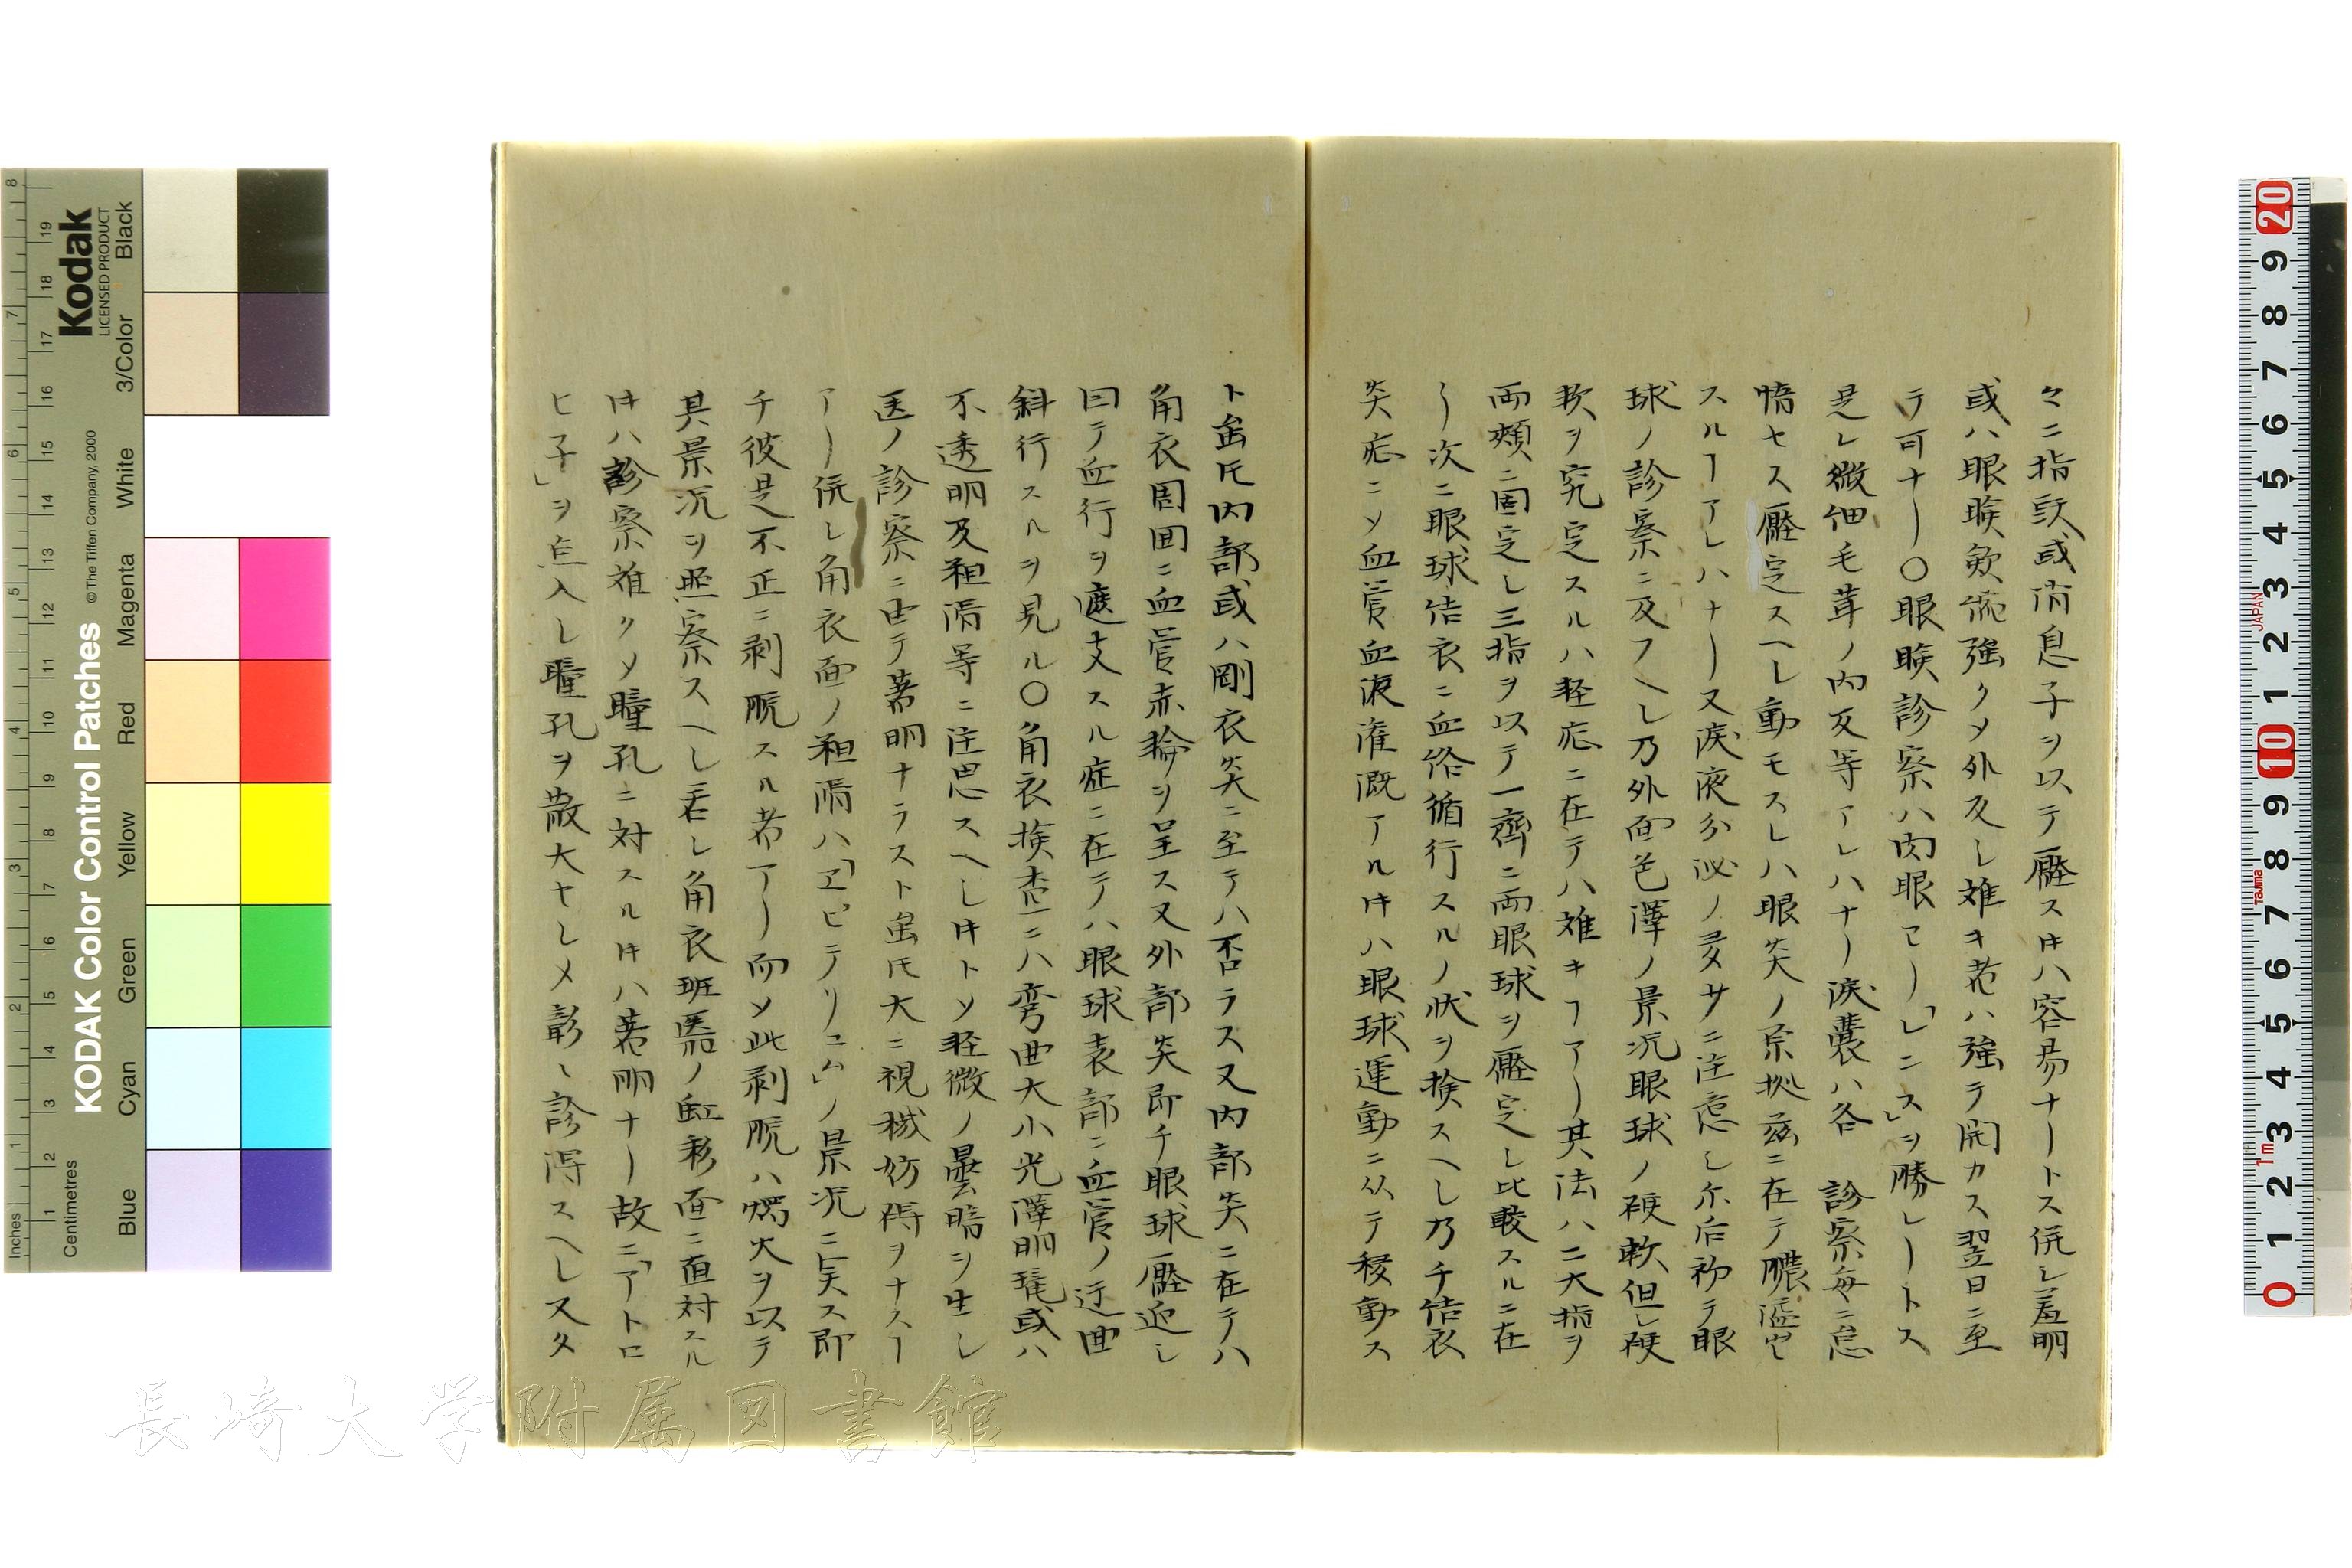 々ニ指或ハ消息子ヲ以テ壓スㇰハ容易ナリトス併シ羞明
或ハ眼瞼欸衝強クメ外反シ難キ者ハ強テ開カス翌日ニ至
テ可ナリ〇眼瞼診察ハ肉眼ヨリ「レンス」ヲ勝レリトス
是レ微細毛茸ノ内反等アレハナリ涙囊ハ各診察毎ニ怠
惰セス壓定スヘシ動モスレハ眼炎ノ原拠茲ニ在テ膿溢出
スルヿアレハナリ又涙液分泌ノ多少ニ注意シ尓后初テ眼
球ノ診察ニ及フヘシ乃外面色澤ノ景況眼球ノ硬軟但シ硬
軟ヲ究定スルハ軽症ニ在テハ難キヿアリ其法ハ二大指ヲ
両頬ニ固定シ三指ヲ以テ一齊ニ両眼球ヲ壓定シ比較スルニ在
リ次ニ眼球結衣ニ血絡循行スルノ状ヲ検スヘシ乃チ結衣
炎症ニメ血管血液潅漑アルㇰハ眼球運動ニ从テ移動ス
ト虽𪜈内部或ハ剛衣炎ニ至テハ否ラス又内部炎ニ在テハ
角衣周囲ニ血管赤輪ヲ呈ス又外部炎即チ眼球壓迫シ
因テ血行ヲ遮支スル症ニ在テハ眼球表部ニ血管ノ迂曲
斜行スルヲ見ル〇角衣検査ニハ弯曲大小光澤明暗或ハ
不透明及粗滑等ニ注思スヘシㇰトメ軽微ノ曇暗ヲ生シ
医ノ診察ニ由テ著明ナラスト虽𪜈大ニ視機妨碍ヲナスヿ
アリ併シ角衣面ノ粗滑ハ「ヱピテリユム」ノ景況ニ矣ス即
チ彼是不正ニ剥脱スル者アリ而メ此剥脱ハ燭火ヲ以テ
其景況ヲ照察スヘシ若シ角衣斑翳ノ虹彩面ニ直対スル
ㇰハ診察難クメ瞳孔ニ対スルㇰハ著明ナリ故ニ「アトロ
ヒ子」ヲ点入シ瞳孔ヲ散大セシメ彰々診得スヘシ又タ
Kodak
LICENSED PRODUCT
KODAK Color Control Patches
© The Tiffen Company, 2000
Inches
Centimetres
Blue
Cyan
Green
Yellow
Red
Magenta
White
3/Color
Black
長崎大学附属図書館